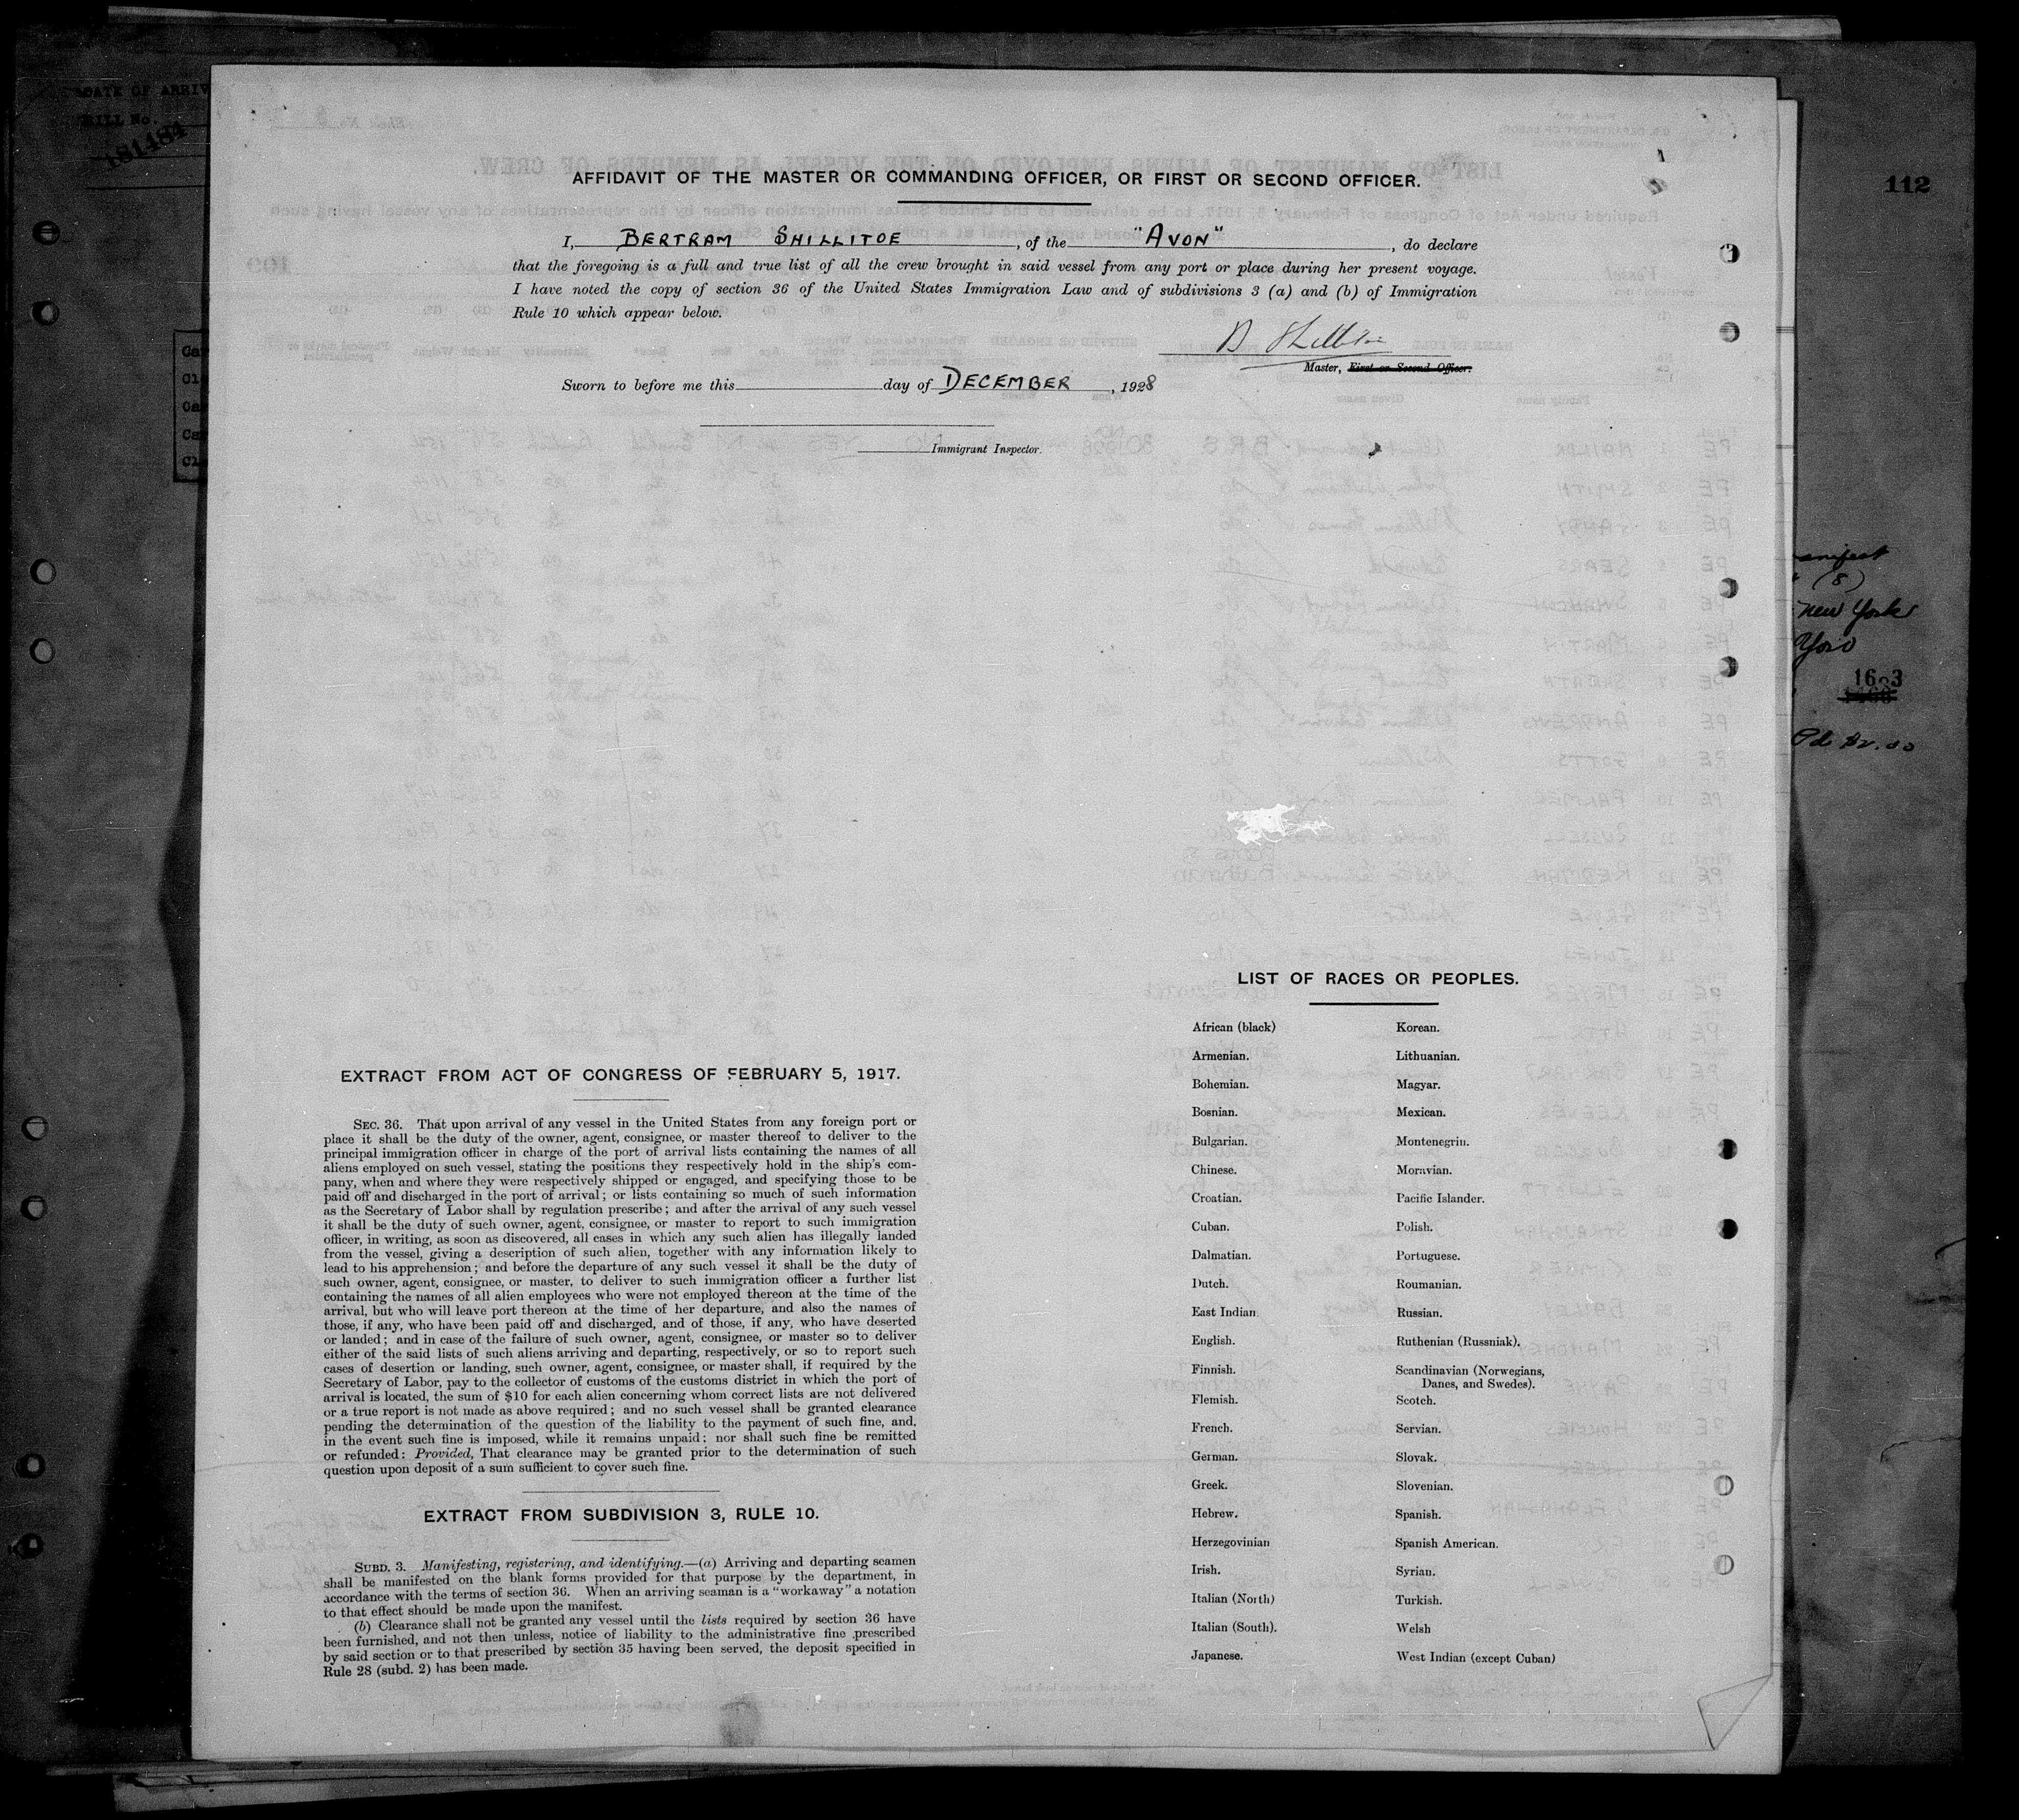 DATE OF ARRIV
BILL No.
181484
112
AFFIDAVIT OF THE MASTER OR COMMANDING OFFICER, OR FIRST OR SECOND OFFICER.
I, BERTRAM SHILLITOE, of the "AVON", do declare
that the foregoing is a full and true list of all the crew brought in said vessel from any port or place during her present voyage.
I have noted the copy of section 36 of the United States Immigration Law and of subdivisions 3 (a) and (b) of Immigration
Rule 10 which appear below.
B Shillitoe
Master, First or Second Officer.
Sworn to before me this day of DECEMBER, 1928
Immigrant Inspector.
manifest
(8)
New York
York
1603
Pd $2.00
EXTRACT FROM ACT OF CONGRESS OF FEBRUARY 5, 1917.
SEC. 36. That upon arrival of any vessel in the United States from any foreign port or
place it shall be the duty of the owner, agent, consignee, or master thereof to deliver to the
principal immigration officer in charge of the port of arrival lists containing the names of all
aliens employed on such vessel, stating the positions they respectively hold in the ship's com-
pany, when and where they were respectively shipped or engaged, and specifying those to be
paid off and discharged in the port of arrival; or lists containing so much of such information
as the Secretary of Labor shall by regulation prescribe; and after the arrival of any such vessel
it shall be the duty of such owner, agent, consignee, or master to report to such immigration
officer, in writing, as soon as discovered, all cases in which any such alien has illegally landed
from the vessel, giving a description of such alien, together with any information likely to
lead to his apprehension; and before the departure of any such vessel it shall be the duty of
such owner, agent, consignee, or master, to deliver to such immigration officer a further list
containing the names of all alien employees who were not employed thereon at the time of the
arrival, but who will leave port thereon at the time of her departure, and also the names of
those, if any, who have been paid off and discharged, and of those, if any, who have deserted
or landed; and in case of the failure of such owner, agent, consignee, or master so to deliver
either of the said lists of such aliens arriving and departing, respectively, or so to report such
cases of desertion or landing, such owner, agent, consignee, or master shall, if required by the
Secretary of Labor, pay to the collector of customs of the customs district in which the port of
arrival is located, the sum of $10 for each alien concerning whom correct lists are not delivered
or a true report is not made as above required; and no such vessel shall be granted clearance
pending the determination of the question of the liability to the payment of such fine, and,
in the event such fine is imposed, while it remains unpaid; nor shall such fine be remitted
or refunded: Provided, That clearance may be granted prior to the determination of such
question upon deposit of a sum sufficient to cover such fine.
EXTRACT FROM SUBDIVISION 3, RULE 10.
SUBD. 3. Manifesting, registering, and identifying.—(a) Arriving and departing seamen
shall be manifested on the blank forms provided for that purpose by the department, in
accordance with the terms of section 36. When an arriving seaman is a "workaway" a notation
to that effect should be made upon the manifest.
(b) Clearance shall not be granted any vessel until the lists required by section 36 have
been furnished, and not then unless, notice of liability to the administrative fine prescribed
by said section or to that prescribed by section 35 having been served, the deposit specified in
Rule 28 (subd. 2) has been made.
LIST OF RACES OR PEOPLES.
African (black)
Armenian.
Bohemian.
Bosnian.
Bulgarian.
Chinese.
Croatian.
Cuban.
Dalmatian.
Dutch.
East Indian
English.
Finnish.
Flemish.
French.
German.
Greek.
Hebrew.
Herzegovinian
Irish.
Italian (North)
Italian (South).
Japanese.
Korean.
Lithuanian.
Magyar.
Mexican.
Montenegrin.
Moravian.
Pacific Islander.
Polish.
Portuguese.
Roumanian.
Russian.
Ruthenian (Russniak).
Scandinavian (Norwegians,
Danes, and Swedes).
Scotch.
Servian.
Slovak.
Slovenian.
Spanish.
Spanish American.
Syrian.
Turkish.
Welsh
West Indian (except Cuban)